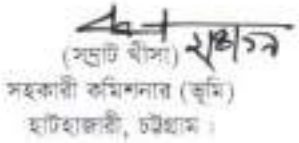 (সম্রাট খীসা)
সহকারী কমিশনার (ভূমি)
হাটহাজারী, চট্টগ্রাম।